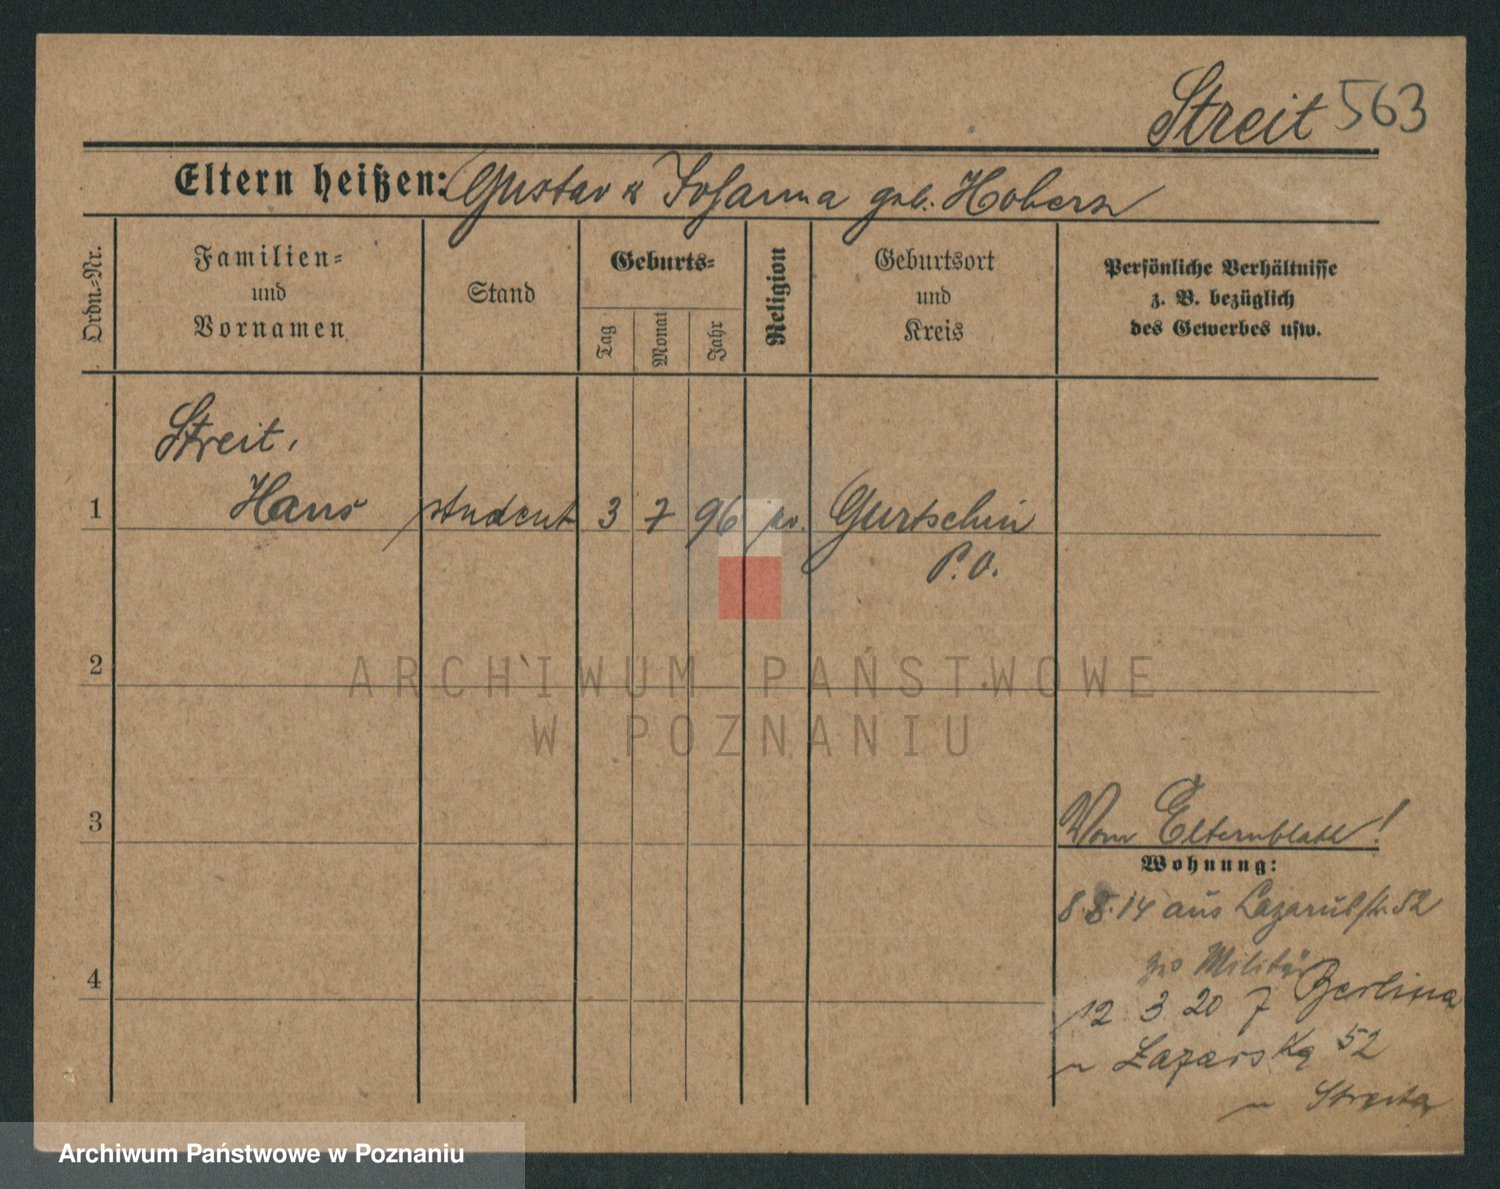 Streit 563
Eltern heißen: Gustav & Johanna geb. Hobern
Ordn.-Nr.
Familien-
und
Vornamen
Stand
Geburts-
Tag
Monat
Jahr
Religion
Geburtsort
und
Kreis
Persönliche Verhältnisse
z. B. bezüglich
des Gewerbes usw.
Streit,
1 Hans student 3 7 96 ev. Gurtschin
P.O.
2
3
Vom Elternblatt!
Wohnung:
8.8.14 aus Lazarusstr. 52
zu Militär
4
12 3. 20 z Berlina
n Łazarska 52
n Streita
ARCHIWUM PAŃSTWOWE
W POZNANIU
Archiwum Państwowe w Poznaniu